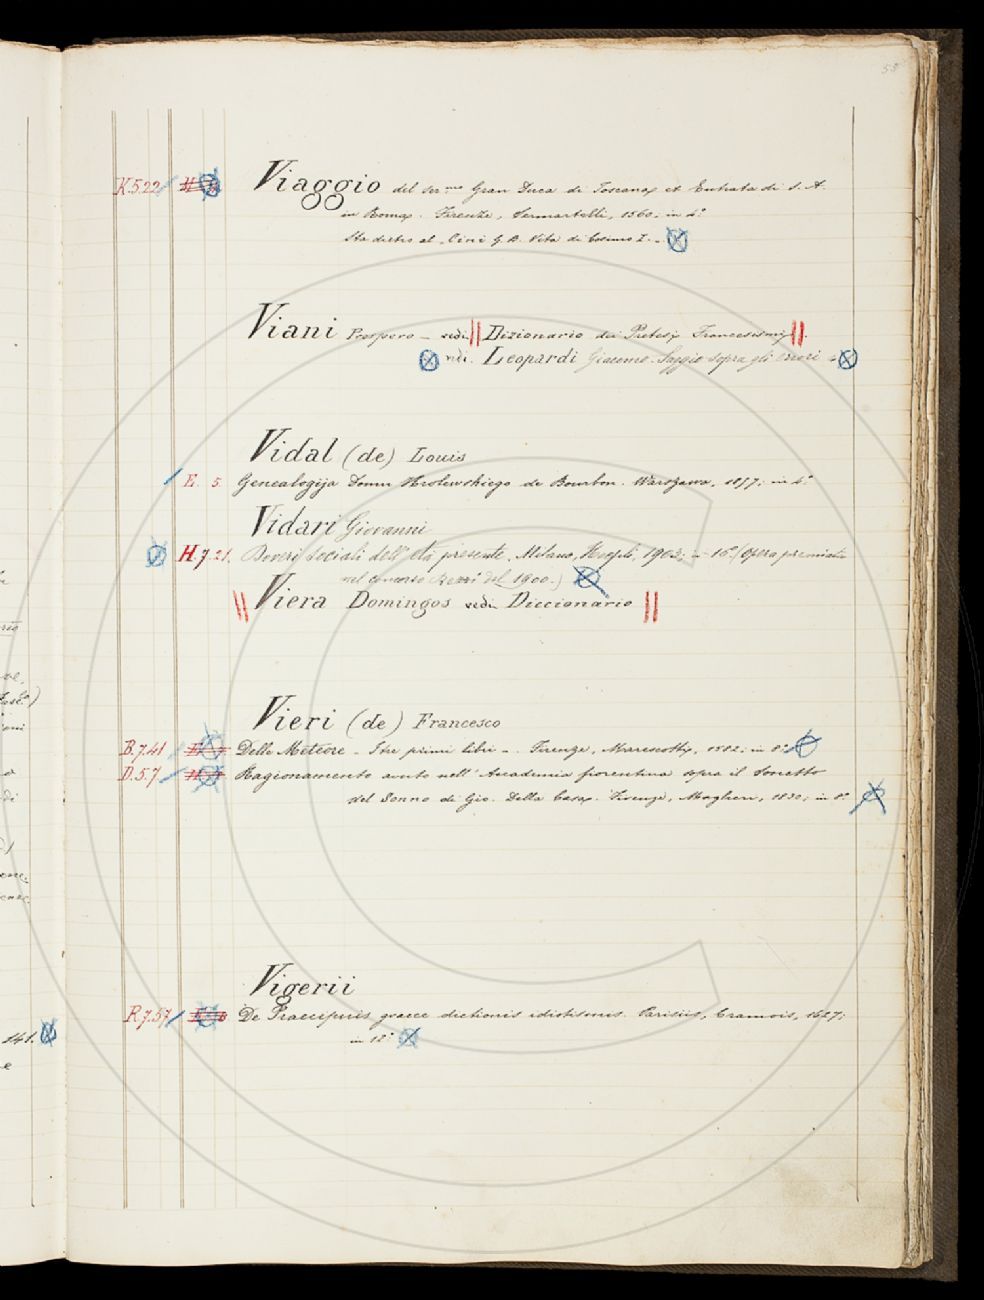 58
K.5.22 Viaggio del ser.mo Gran Duca di Toscana et Entrata di S. A.
in Roma. Firenze, Sermartelli, 1560; in 4.°
Sta dietro al "Cini G. B. Vita di Cosimo I."
Viani Prospero - vedi Dizionario dei Pretesi Francesismi.
vedi. Leopardi Giacomo. Saggio sopra gli errori
Vidal (de) Louis
E. 5. Genealogija Domu Krolewskiego de Bourbon. Warszawa, 1877; in 4.°
Vidari Giovanni
H.7.21. Doveri sociali dell'età presente. Milano, Hoepli, 1903; in 16.° (Opera premiata
nel concorso Rezzi del 1900.)
Viera Domingos vedi Diccionario
Vieri (de) Francesco
B.7.41 Delle Meteore - I tre primi libri -. Firenze, Marescotti, 1582; in 8.°
D.5.7 Ragionamento avuto nell'Accademia fiorentina sopra il Sonetto
del Sonno di Gio. Della Casa. Firenze, Magheri, 1830; in 8.°
Vigerii
R.7.57 De Praecipuis graece dictionis idiotismis. Parisiis, Cramois, 1627;
in 12.°
141.